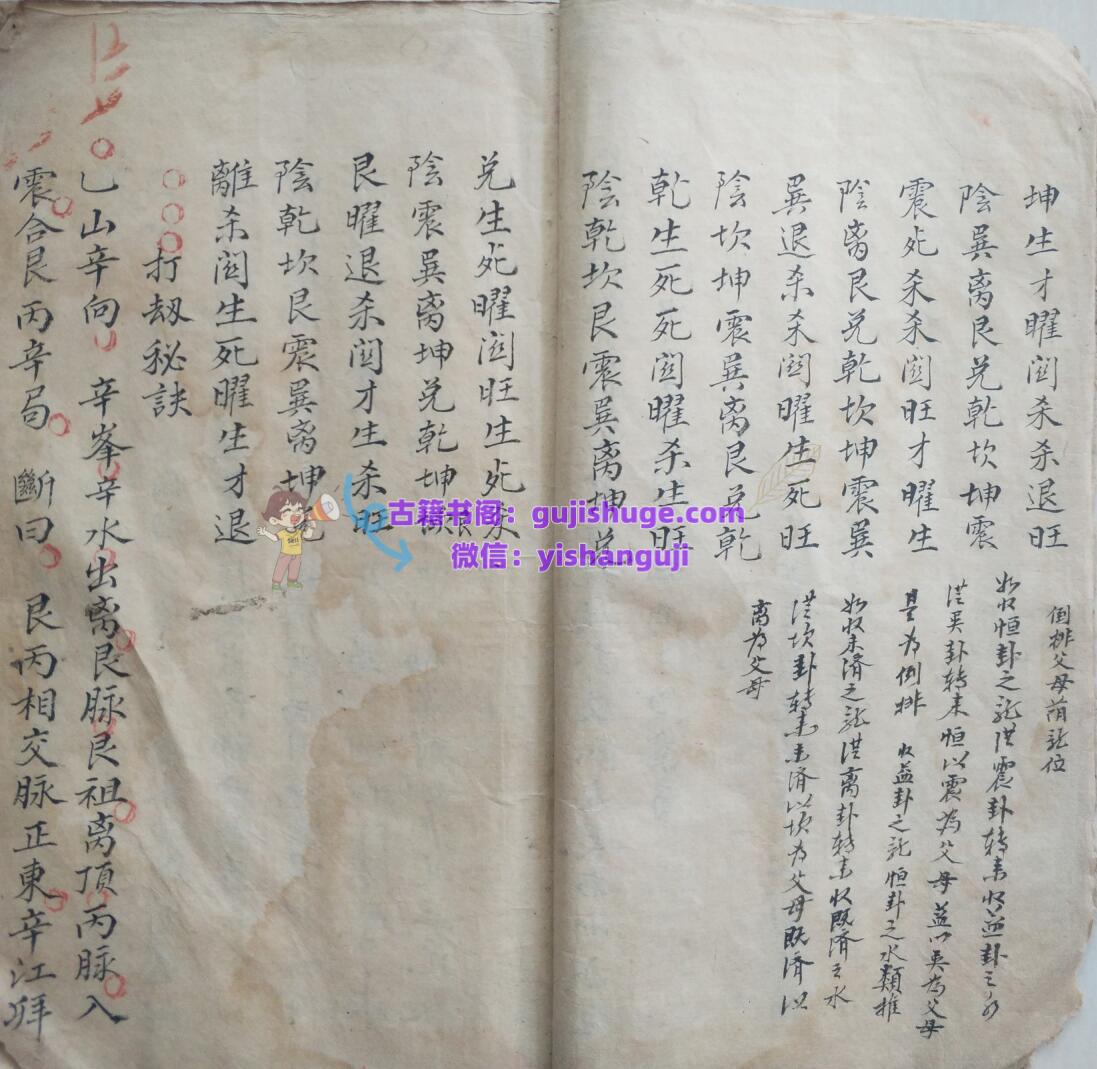 坤生才曜囵杀杀退旺
陰巽离艮兑乾坎坤震
震死杀杀囵旺才曜生
陰离艮兑乾坎坤震巽
巽退杀杀囵曜生死旺
陰坎坤震巽离艮兑乾
乾生死死囵曜杀生旺
陰乾坎艮震巽离坤兑
倒排父母蔭龍位
如收恒卦之龍從震卦轉來收益卦之水
從巽卦轉来恒以震為父母益以巽為父母
是为倒排 收益卦之龍恒卦之水類推
如收未濟之龍從离卦轉来收既濟之水
從坎卦轉来未濟以坎为父母既濟以
离为父母
兑生死曜囵旺生死杀
陰震巽离坤兑乾坤
艮曜退杀囵才生杀旺
陰乾坎艮震巽离坤兑
離杀囵生死曜生才退
打劫秘訣
乙山辛向 辛峯辛水出离艮脉艮祖离頂丙脉入
震合艮丙辛局 斷曰 艮丙相交脉正東辛江拜
古籍书阁：gujishuge.com
微信：yishanguji